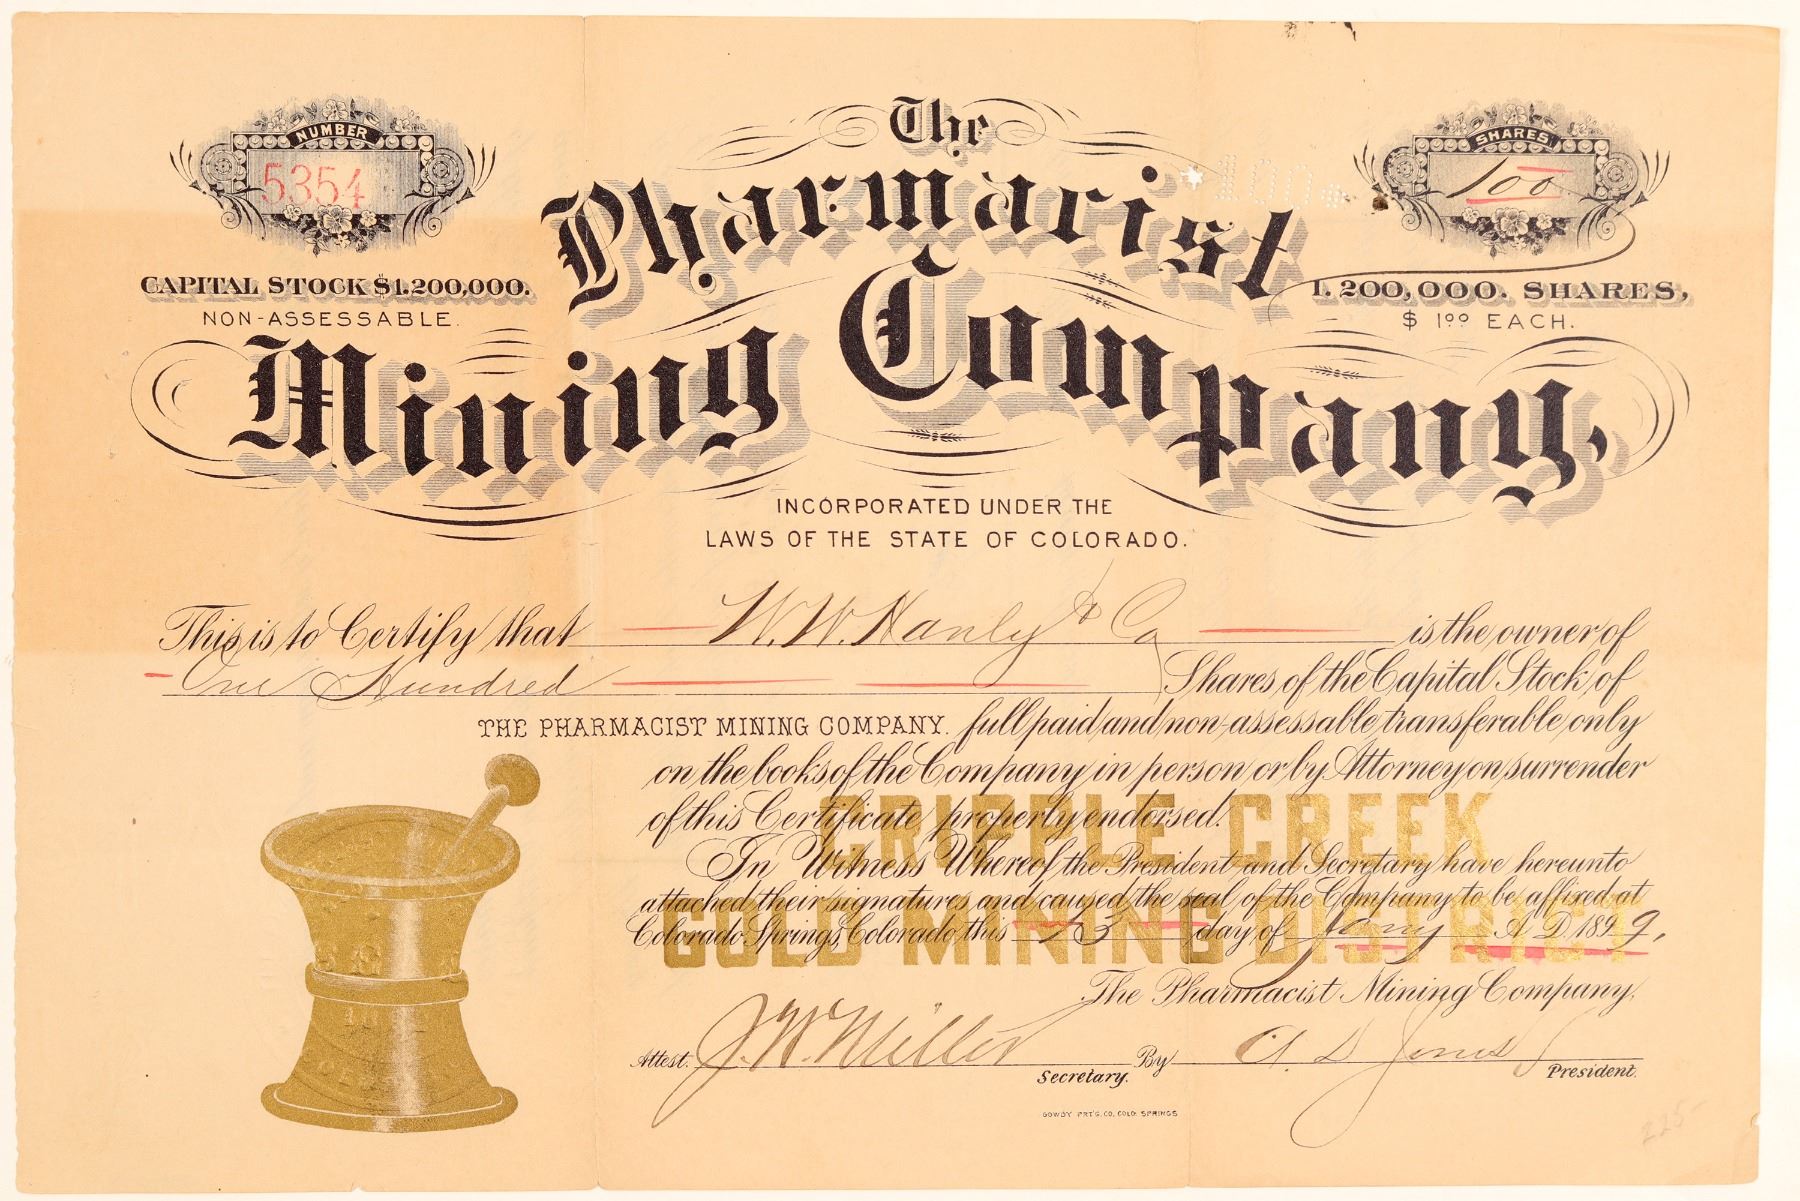 NUMBER
5354
SHARES
100
The
Pharmacist
*100*
CAPITAL STOCK $1.200,000.
NON-ASSESSABLE.
1. 200,000. SHARES,
$ 1.00 EACH.
Mining Company,
INCORPORATED UNDER THE
LAWS OF THE STATE OF COLORADO.
This is to Certify that W. W. Hanly & Co is the owner of
One Hundred Shares of the Capital Stock of
THE PHARMACIST MINING COMPANY. full paid and non-assessable transferable only
on the books of the Company in person or by Attorney on surrender
of this Certificate properly endorsed.
CRIPPLE CREEK
In Witness Whereof the President and Secretary have hereunto
attached their signatures and caused the seal of the Company to be affixed at
Colorado Springs, Colorado, this 13 day of Jany A D, 1899,
GOLD MINING DISTRICT
The Pharmacist Mining Company,
Attest. J. W. Miller By A D Jones
Secretary. President.
GOWDY PRT'G. CO. COLO. SPRINGS
225-